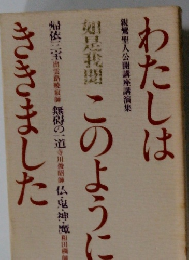 わたしは
親鸞聖人公開講座講演集
このように
如是我聞
無碍の一道
仏・鬼・神・魔
帰依三宝
ききました